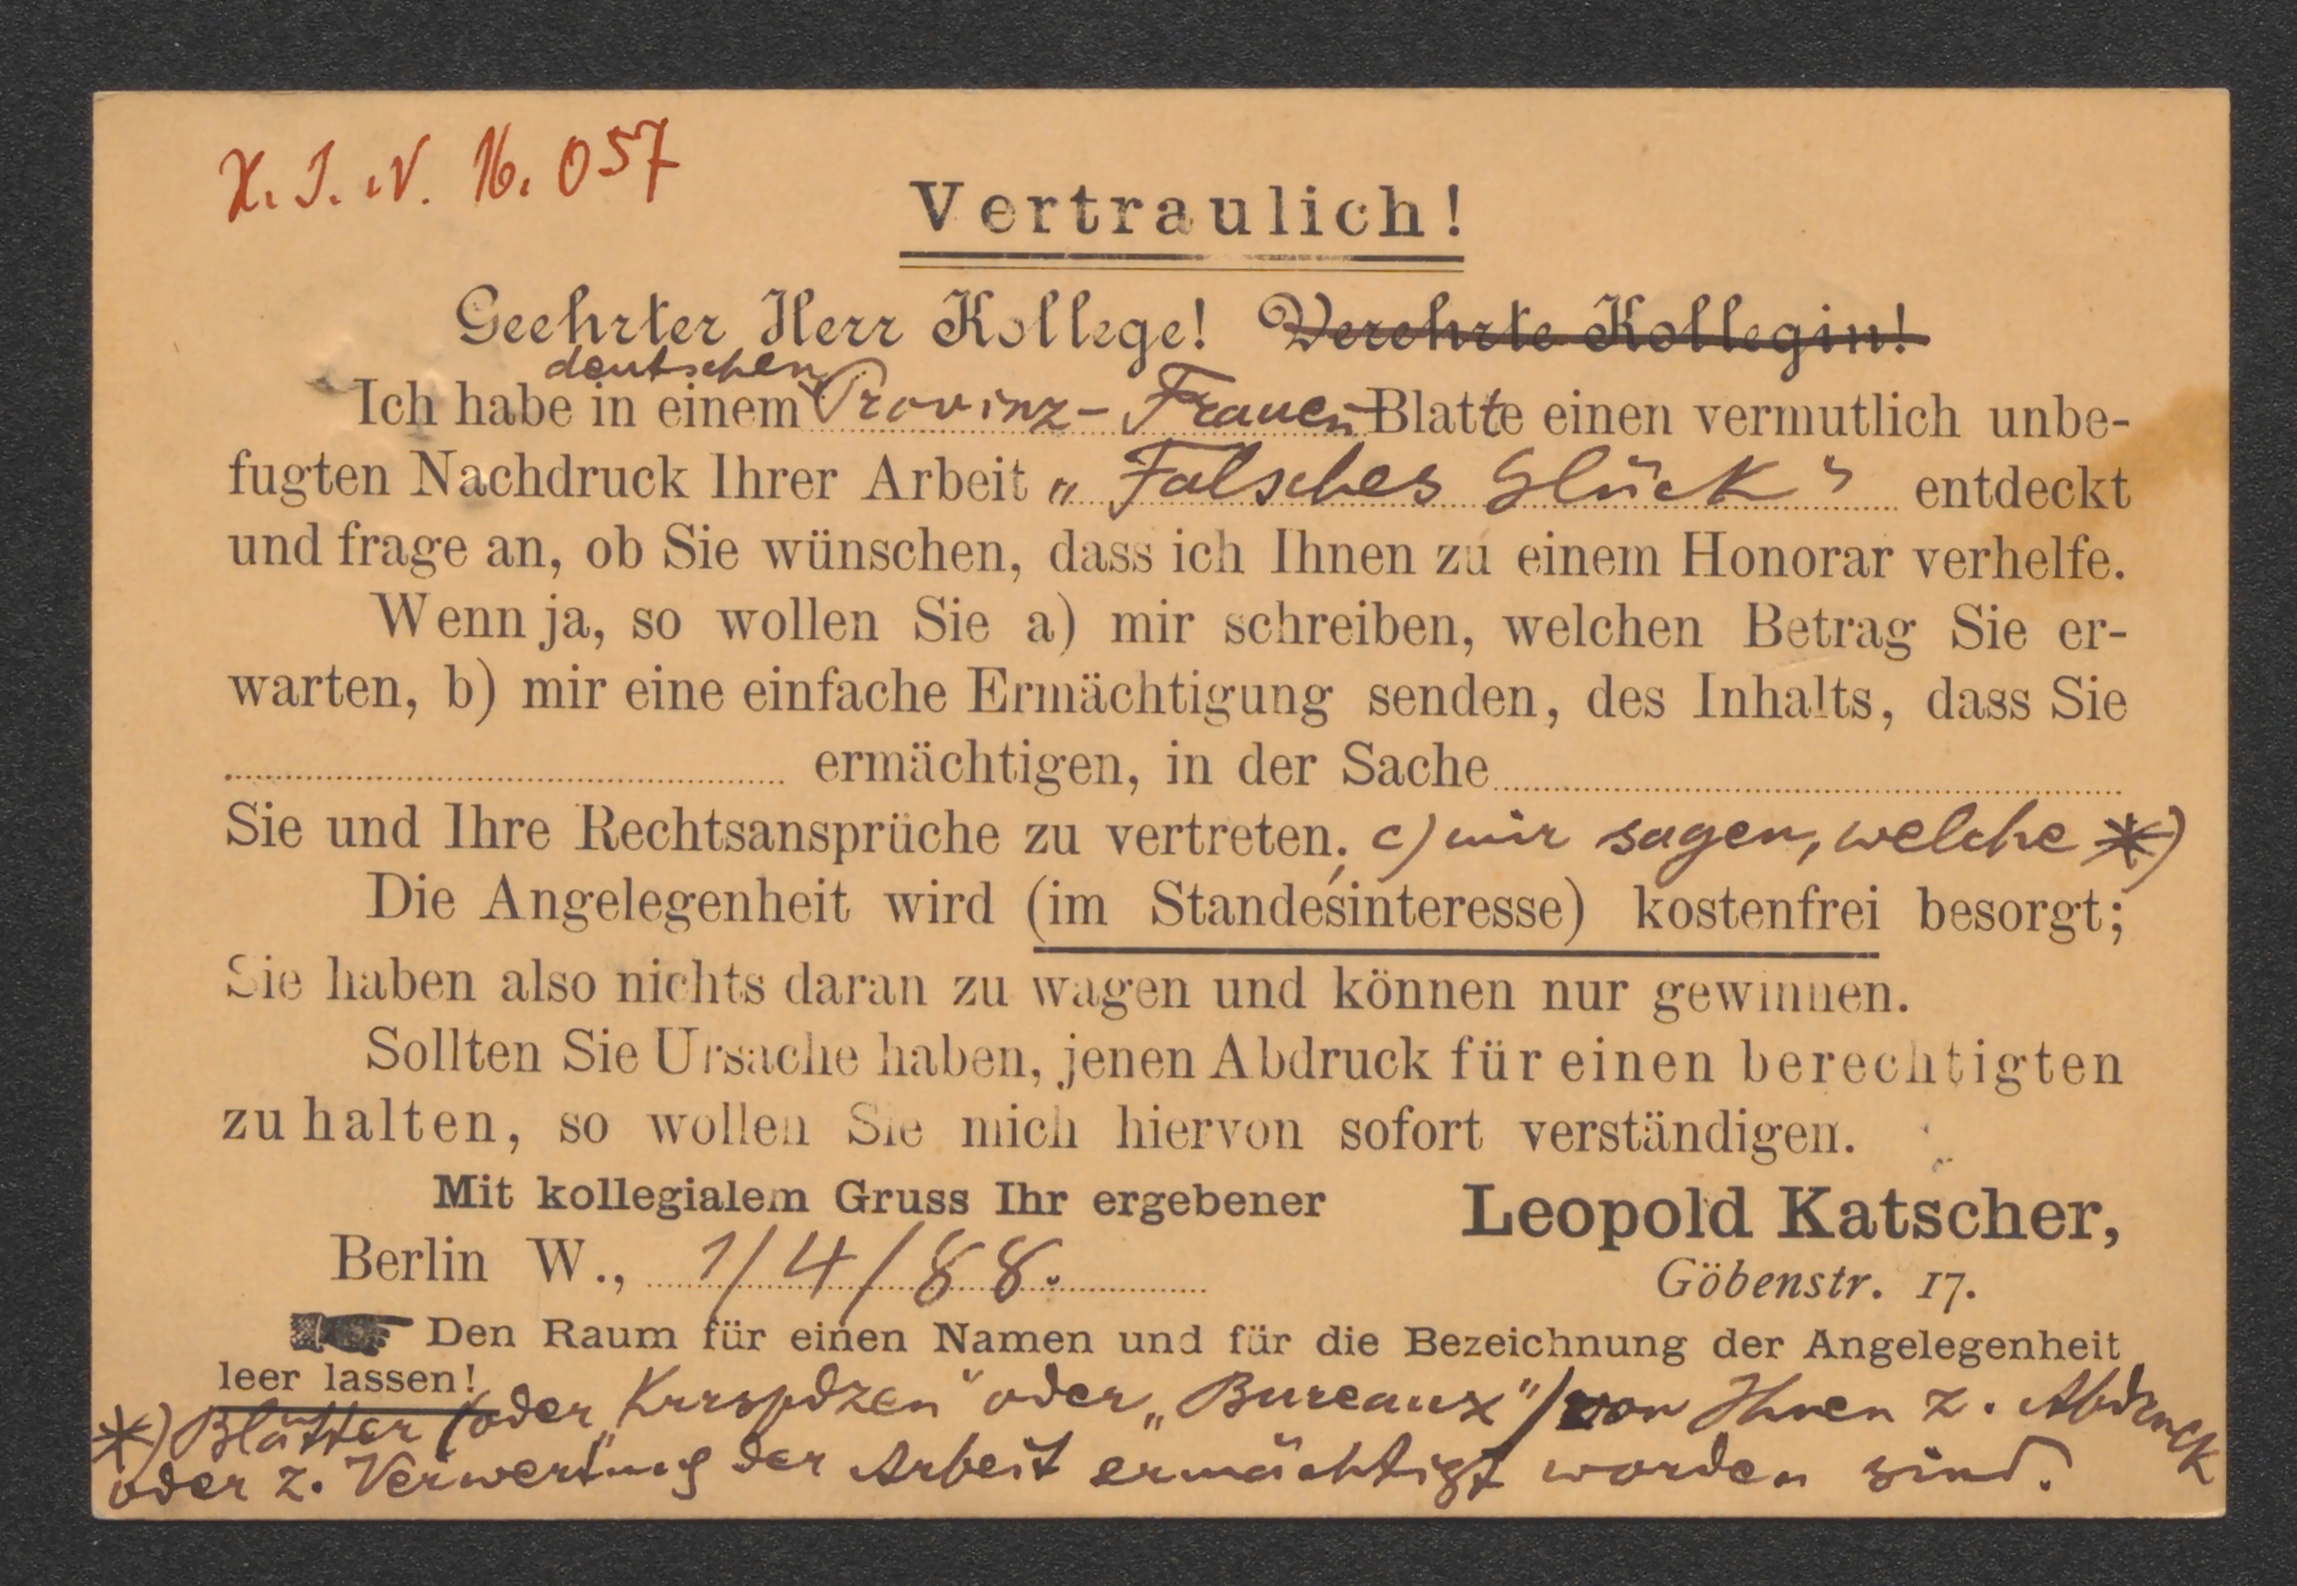 H. I. N. 16. 057
Vertraulich!
Geehrter Herr Kollege! Verehrte Kollegin!
deutschen
Ich habe in einem Provinz-Frauen-Blatte einen vermutlich unbe-
fugten Nachdruck Ihrer Arbeit „Falsches Glück" entdeckt
und frage an, ob Sie wünschen, dass ich Ihnen zu einem Honorar verhelfe.
Wenn ja, so wollen Sie a) mir schreiben, welchen Betrag Sie er-
warten, b) mir eine einfache Ermächtigung senden, des Inhalts, dass Sie
........ ermächtigen, in der Sache ........
Sie und Ihre Rechtsansprüche zu vertreten; c) mir sagen, welche *)
Die Angelegenheit wird (im Standesinteresse) kostenfrei besorgt;
Sie haben also nichts daran zu wagen und können nur gewinnen.
Sollten Sie Ursache haben, jenen Abdruck für einen berechtigten
zu halten, so wollen Sie mich hiervon sofort verständigen.
Mit kollegialem Gruss Ihr ergebener
Leopold Katscher,
Berlin W., 1/4/88.
Göbenstr. 17.
☛ Den Raum für einen Namen und für die Bezeichnung der Angelegenheit
leer lassen!
*) Blätter (oder „Krrspdzen" oder „Bureaux") von Ihnen z. Abdruck
oder z. Verwertung der Arbeit ermächtigt worden sind.